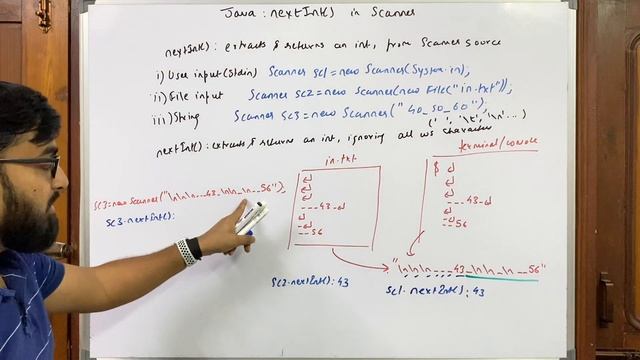 Java : nextInt() in Scanner
nextInt() : extracts & returns an int, from Scanner source
i) User input (Stdin) Scanner sc1 = new Scanner(System.in);
ii) File input Scanner sc2 = new Scanner(new File("in.txt"));
iii) String Scanner sc3 = new Scanner("40_50_60");
(' ', '\t', '\n' ...)
nextInt() : extracts & returns an int, ignoring all ws character
in.txt
terminal/console
sc3 = new Scanner("\n\n\n_ _ _43_\n\n_\n_ _56");
sc3.nextInt():
↵
↵
↵
_ _ _43_↵
↵
_↵
_ _56
$ ↵
↵
↵
_ _ _43_↵
↵
_↵
_ _56
"\n\n\n_ _ _43_\n\n_\n_ _56"
sc2.nextInt() : 43
sc1.nextInt() : 43